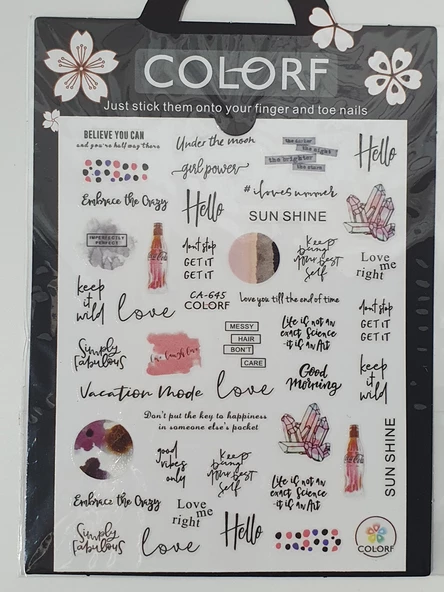 COLORF
Just stick them onto your finger and toe nails
BELIEVE YOU CAN
and you're half way there
Under the moon
the darker
the night
the brighter
the stars
Hello
girl power
Embrace the Crazy
Hello
#ilovesummer
SUN SHINE
IMPERFECTLY
PERFECT
dont stop
GET IT
GET IT
Keep
being
your best
self
Love me
right
keep
it
wild
love
CA-645
COLORF
Love you till the end of time
dont stop
GET IT
GET IT
Simply
Fabulous
live laugh love
MESSY
HAIR
DON'T
CARE
Life is not an
exact Science
-it is an Art
Good
Morning
keep
it
wild
Vacation mode
love
Don't put the key to happiness
in someone else's pocket
good
vibes
only
Keep
being
your best
self
SUN SHINE
Life is not an
exact Science
-it is an Art
Embrace the Crazy
Love me
right
Simply
Fabulous
love
Hello
COLORF